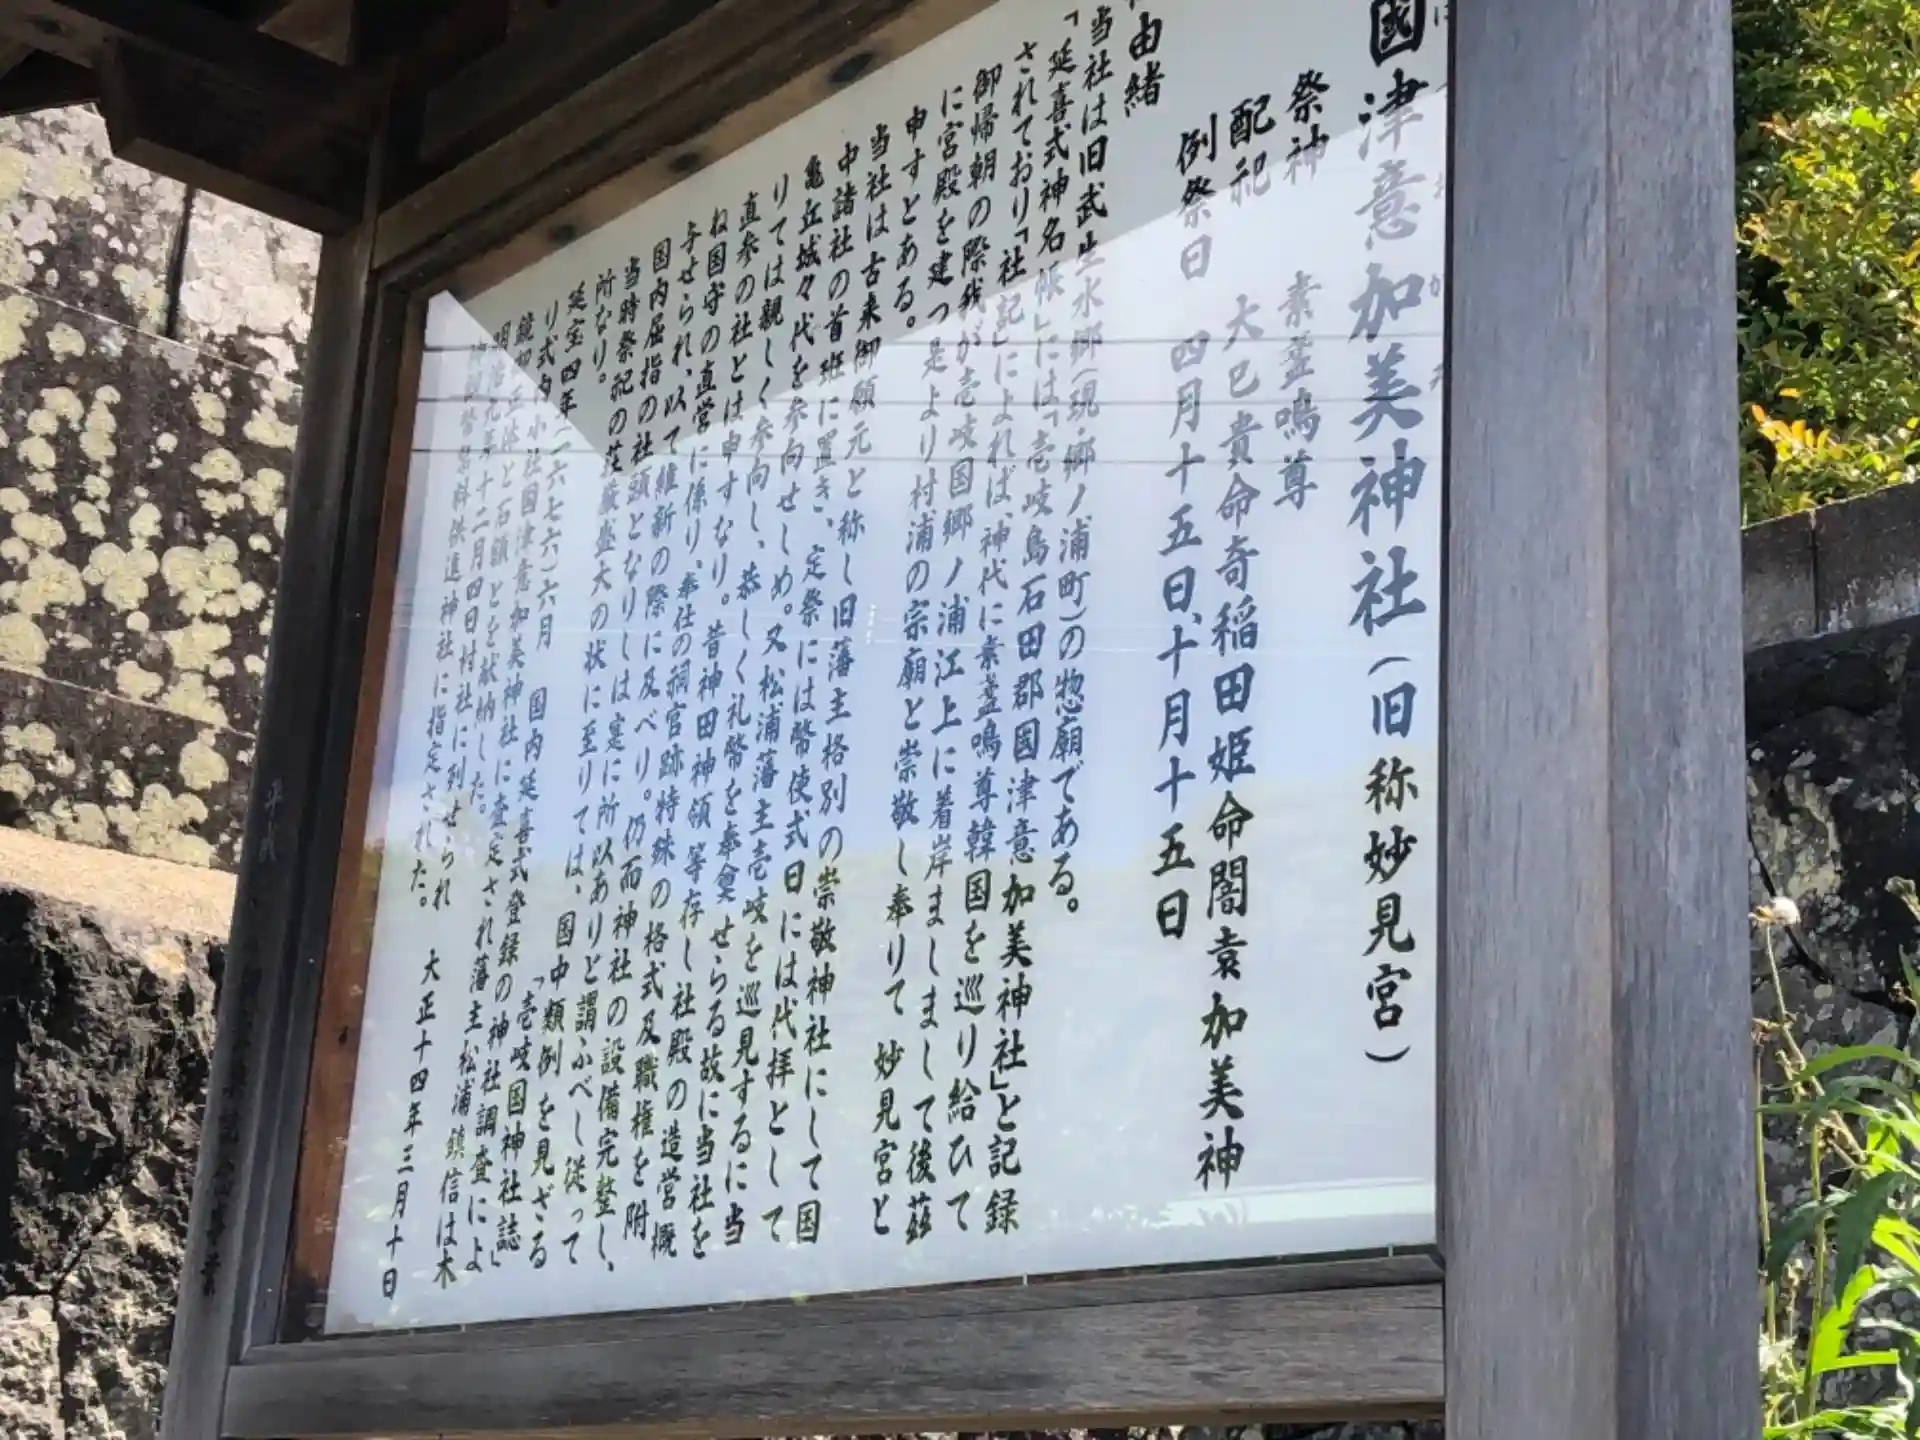 國津意加美神社(旧称妙見宮)
祭神 素盞鳴尊
配祀 大巳貴命奇稲田姫命闇袁加美神
例祭日 四月十五日、十月十五日
由緒
当社は旧武生水郷(現・郷ノ浦町)の惣廟である。
「延喜式神名帳」には「壱岐島石田郡国津意加美神社」と記録
されており「社記」によれば、神代に素盞鳴尊韓国を巡り給ひて
御帰朝の際我が壱岐国郷ノ浦江上に着岸ましまして後茲
に宮殿を建つ是より村浦の宗廟と崇敬し奉りて妙見宮と
申すとある。
当社は古来御願元と称し旧藩主格別の崇敬神社にして国
中諸社の首班に置き、定祭には幣使式日には代拝として
亀丘城々代を参向せしめ。又松浦藩主壱岐を巡見するに当
りては親しく参向し、恭しく礼幣を奉奠せらる故に当社を
直参の社とは申すなり。昔神田神領等存し社殿の造営概
ね国守の直営に係り、奉仕の祠官跡特殊の格式及職権を附
与せられ、以て維新の際に及べり。仍而神社の設備完整し、
国内屈指の社頭となりしは寔に所以ありと謂ふべし従って
当時祭祀の荘厳盛大の状に至りては、国中類例を見ざる
所なり。 「壱岐国神社誌」
延宝四年(一六七六)六月 国内延喜式登録の神社調査によ
り式内小社国津意加美神社に査定され藩主松浦鎮信は木
鏡 正体と石額とを献納した。
明治九年十二月四日村社に列せられ
幣帛料供進神社に指定された。 大正十四年三月十日
平成